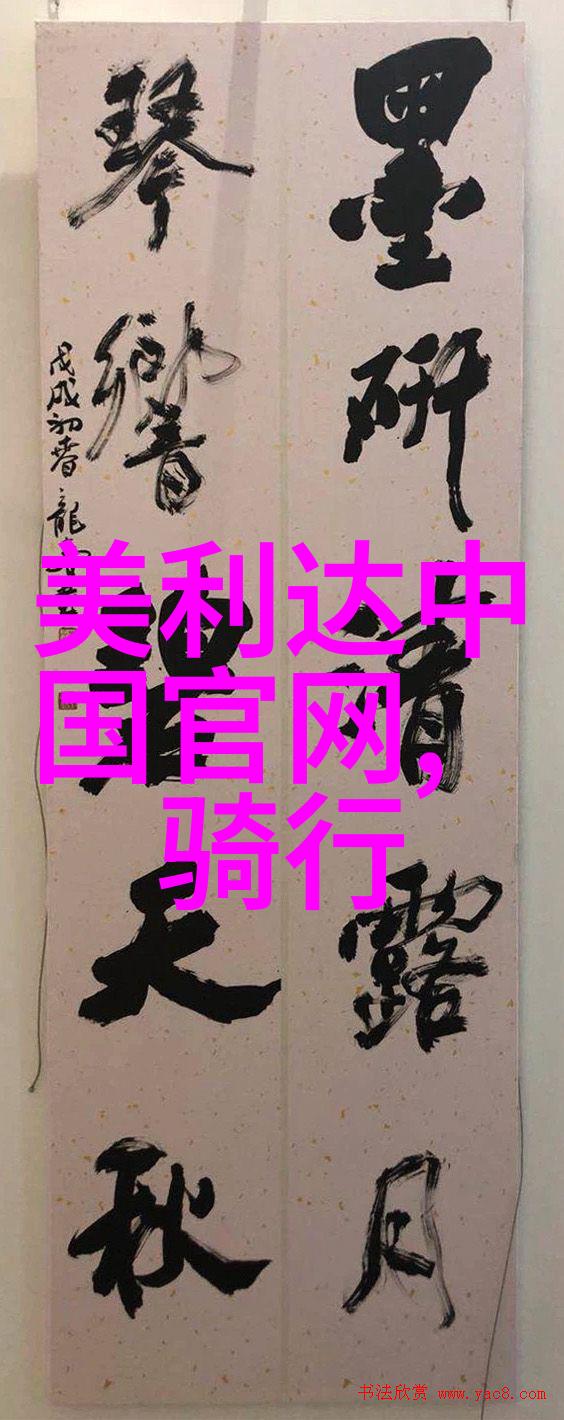 墨研清露月
琴響天秋
戊戌初春 龍
美利达中
国官网,
骑行
书法欣赏 www.yac8.com